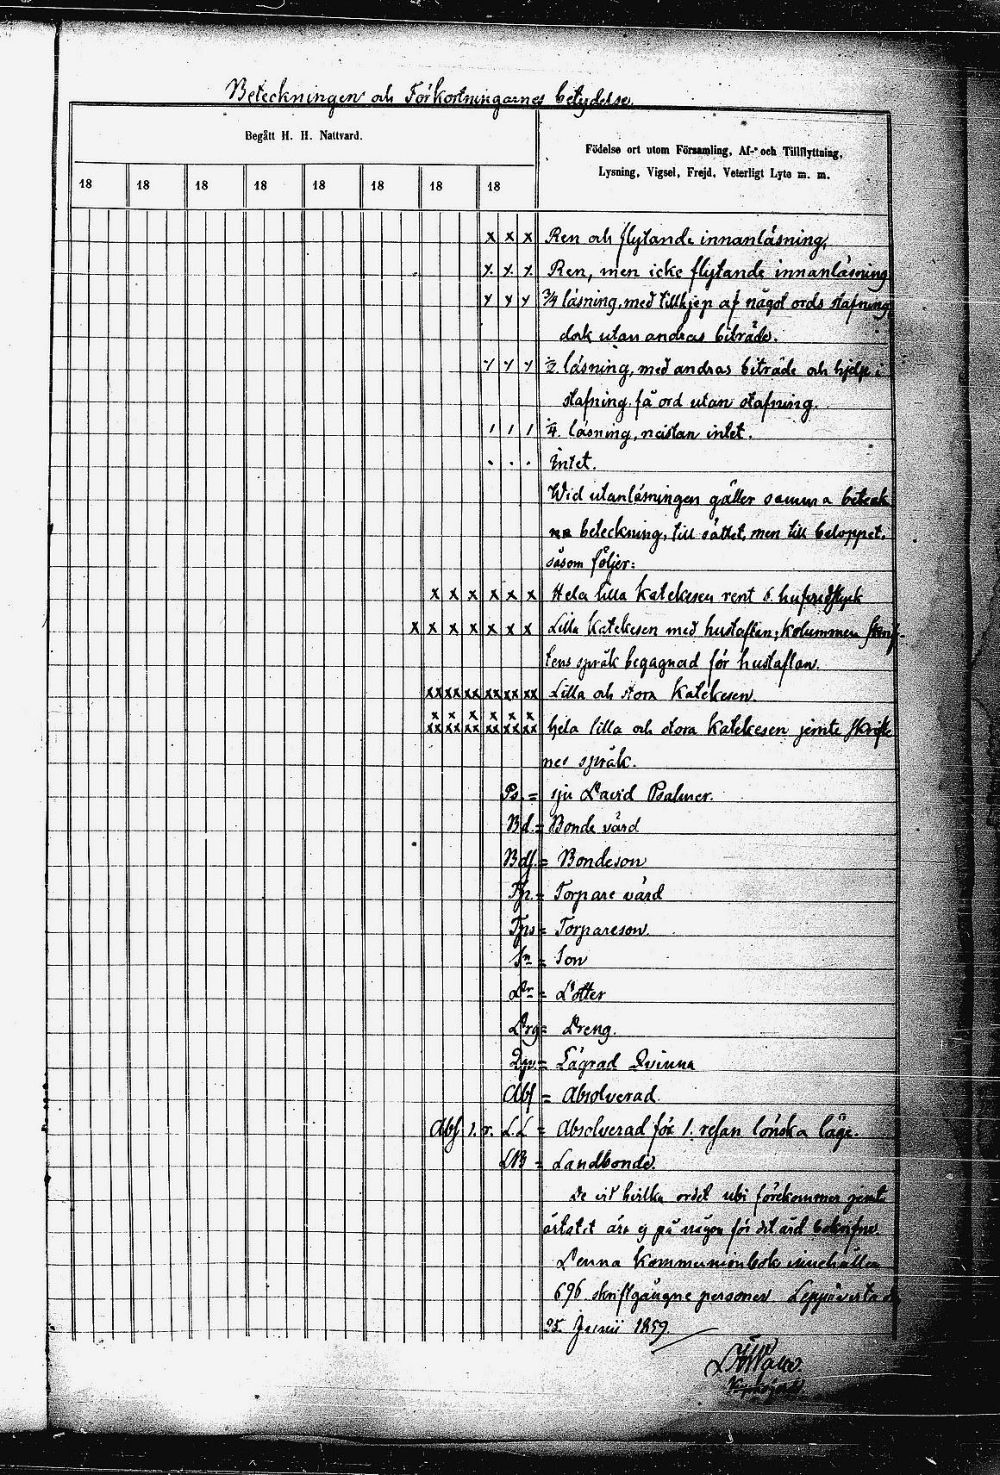 Beteckningen och Förkortningarnes betydelse.
Begått H. H. Nattvard.
Födelse ort utom Församling, Af- och Tillflyttning,
Lysning, Vigsel, Frejd, Veterligt Lyte m. m.
18 18 18 18 18 18 18 18
x x x Ren och flytande innanläsning.
Ren, men icke flytande innanläsning
3/4 läsning, med tillhjep af något ords stafning
dock utan andras biträde.
1/2 läsning, med andras biträde och hjelp i
stafning. få ord utan stafning.
1/4 läsning, nästan intet.
. . . Intet.
Wid utanläsningen gäller samma
beteckning, till sättet, men till beloppet,
såsom följer:
x x x x x x Hela lilla Katekesen rent
x x x x x x x Lilla Katekesen med hustaflan; Kolumnen
tens språk begagnad för hustaflan.
xx xx xx xx xx xx Lilla och stora Katekesen.
x x x x x x
xx xx xx xx xx xx hela lilla och stora Katekesen jemte Skrifte
nes språk.
Ps. = sju David Psalmer.
Bd. = Bonde värd
Bds. = Bondeson
Tp. = Torpare värd
Tps = Torpareson.
Sn = Son
Dr = Dotter
Drg = Dreng.
= Lägrad Qvinna
Abs = Absolverad.
Abs. 1. r. L.L = Absolverad för 1. resan lönska läge.
LB = Landbonde.
De vid hvilka ordet ubi förekommer jemte
årtalet äro ej på någon för det året
Denna Kommunionbok innehåller
696 skriftgångne personer Leppävirta
25. Junii 1859.